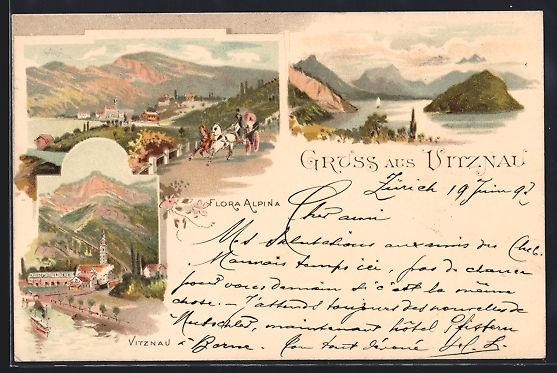 GRUSS AUS VITZNAU
FLORA ALPINA
VITZNAU
Zürich 19 Juin 97
Cher ami
Mes salutations aux amis du
Mauvais temps ici, pas de chance
pour voir demain si c'est la même
chose. - J'attends toujours des nouvelles de
maintenant hôtel Pfistern
à Berne. Ton tout dévoué